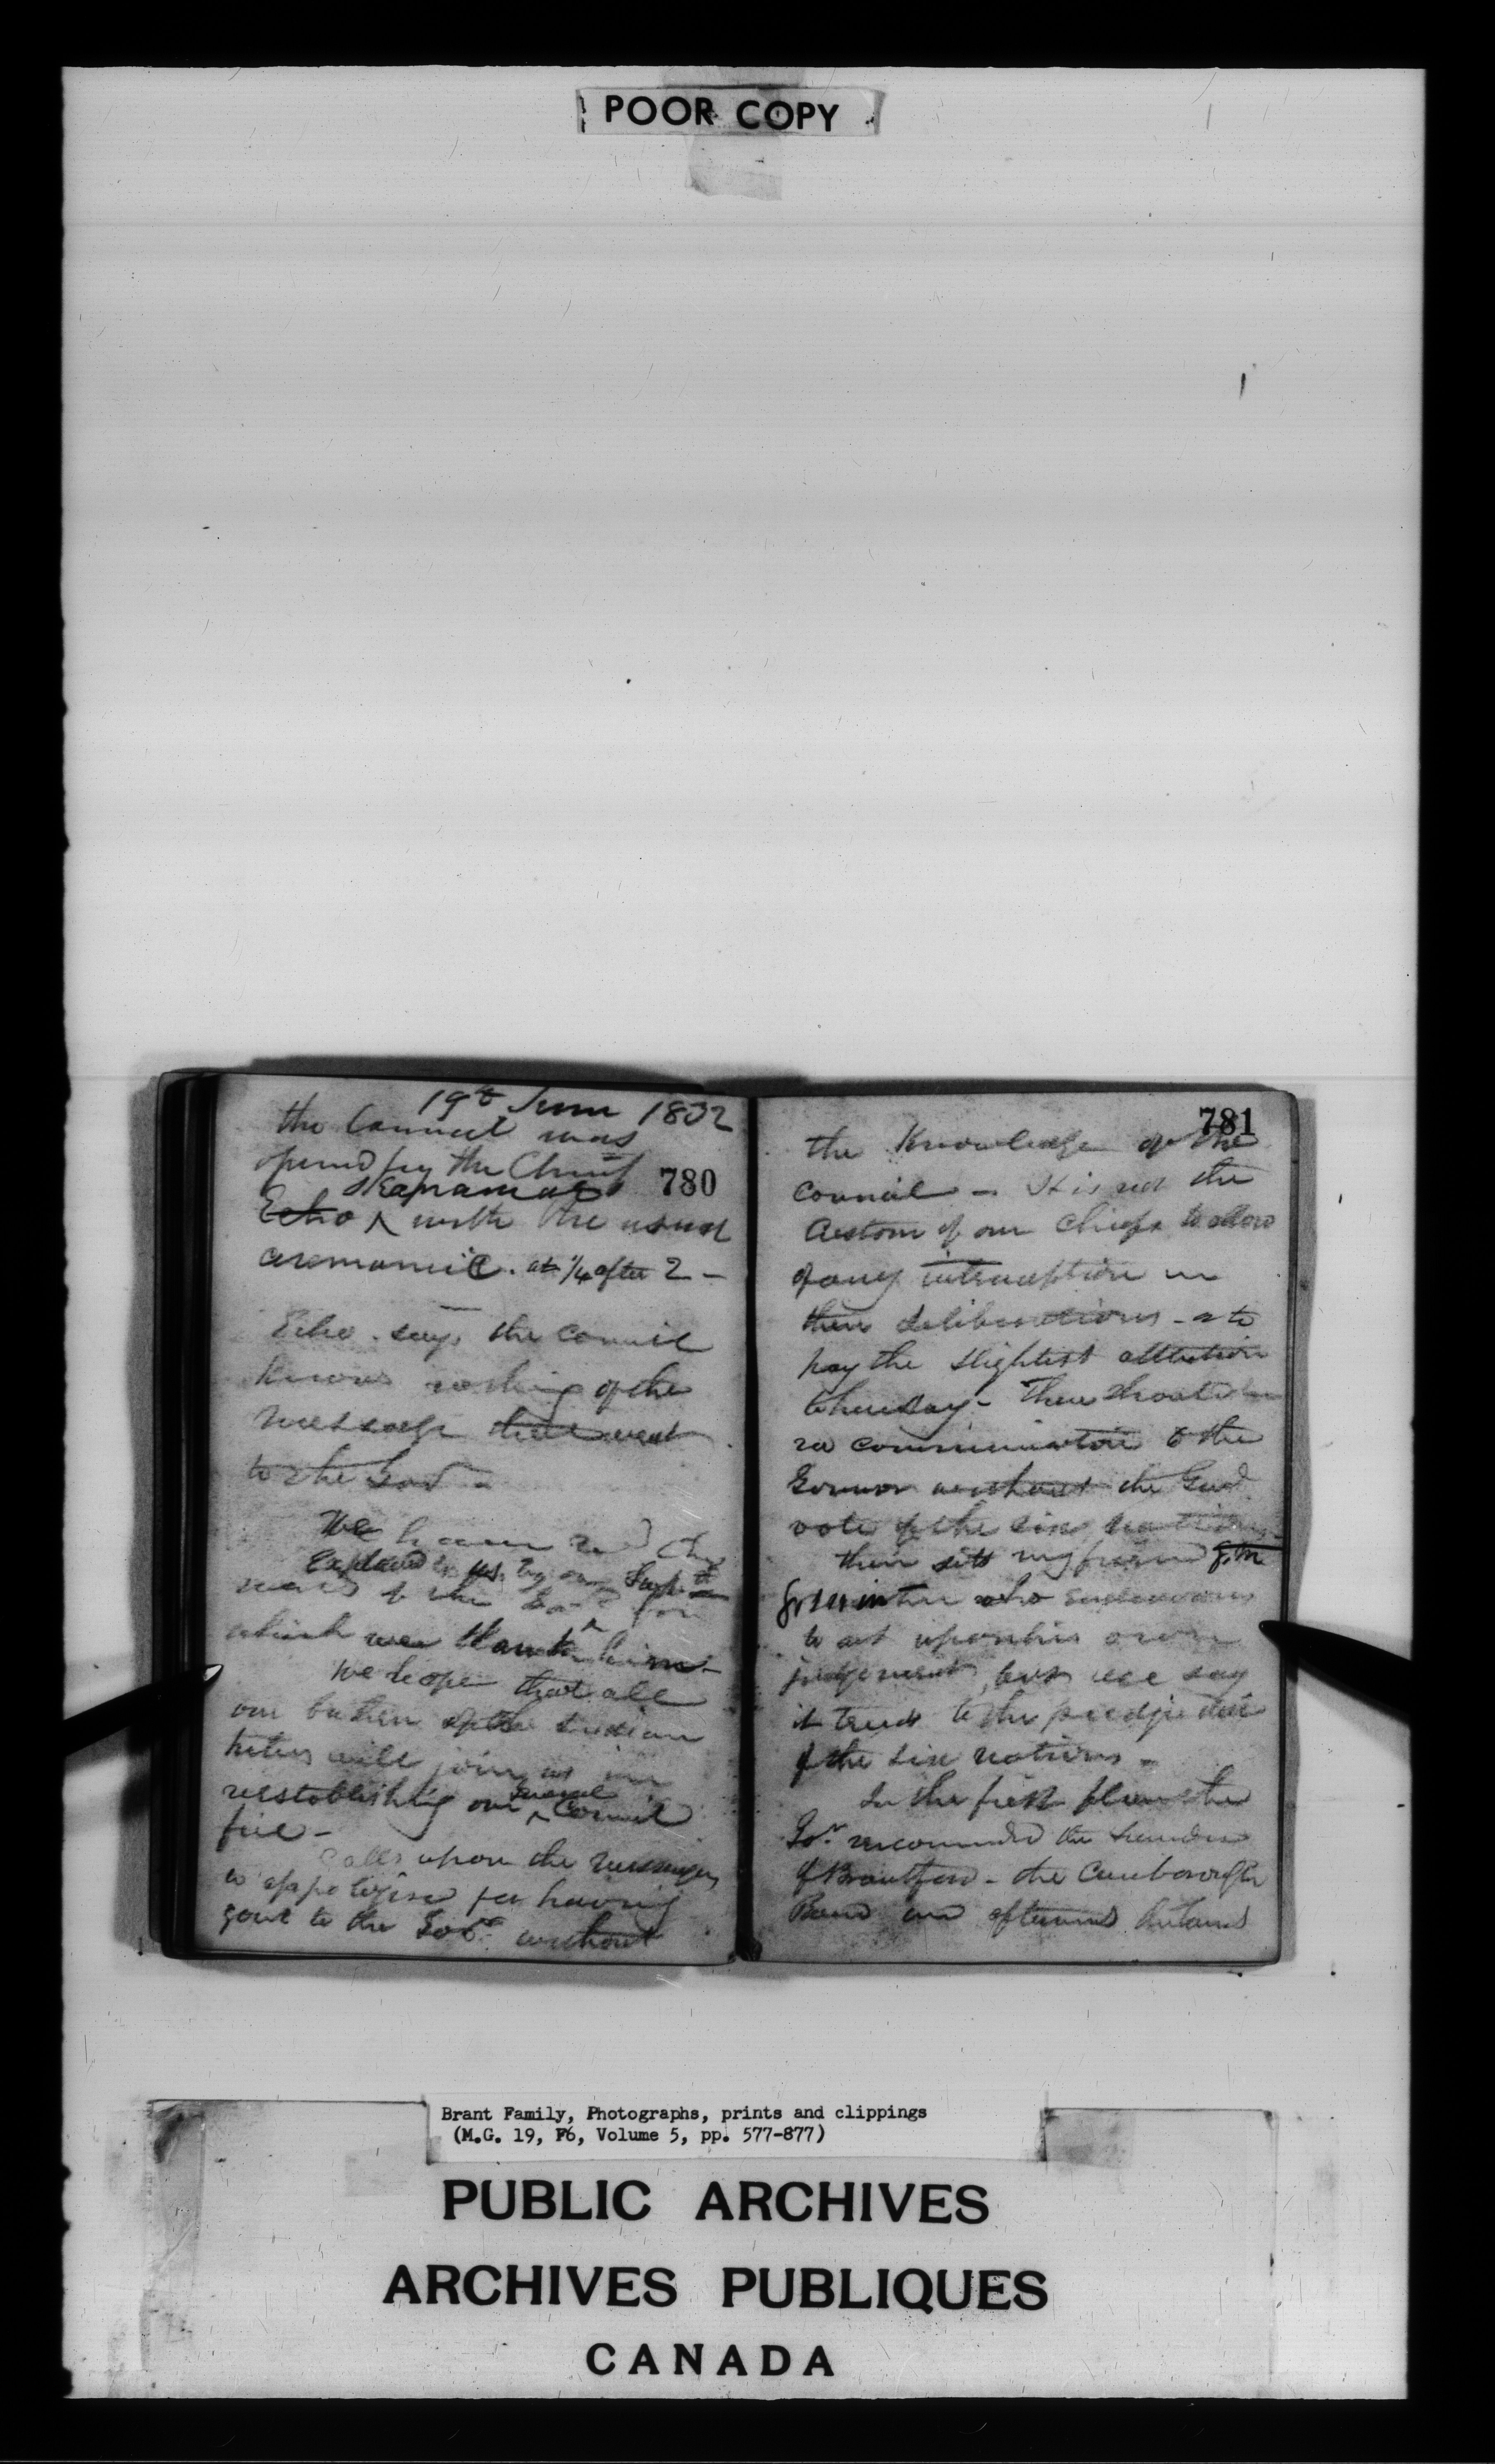 POOR COPY
19th June 1832
the Council was
opened by the Chief
780
Echo ^ with the usual
ceremonie. at 1/4 after 2 -
Echo. says the Council
knows nothing of the
message that went
to the Govr -
We have recd the
Explaind to us by our Supt
words of the Govr for
which we thank ^ him -
We hope that all
our brethren of the Indian
tribes will join us in
reestablishing our ^ Council
fire -
Calls upon the messengers
to appologise for having
gone to the Govr without
781
the Knowledge of the
Council - It is not the
Custom of our Chiefs to allow
of any interruption in
their deliberations - or to
pay the slightest attention
to hearsay - There should be
no communication to the
Govenor without the Genl
vote of the six nations -
their sits my friend
who endeavours
to act upon his own
judgement, but we say
it tends to the predjudice
of the six nations -
In the first place the
Govr recommended the surrender
of Brantford - the
and afterwards
Brant Family, Photographs, prints and clippings
(M.G. 19, F6, Volume 5, pp. 577-877)
PUBLIC ARCHIVES
ARCHIVES PUBLIQUES
CANADA